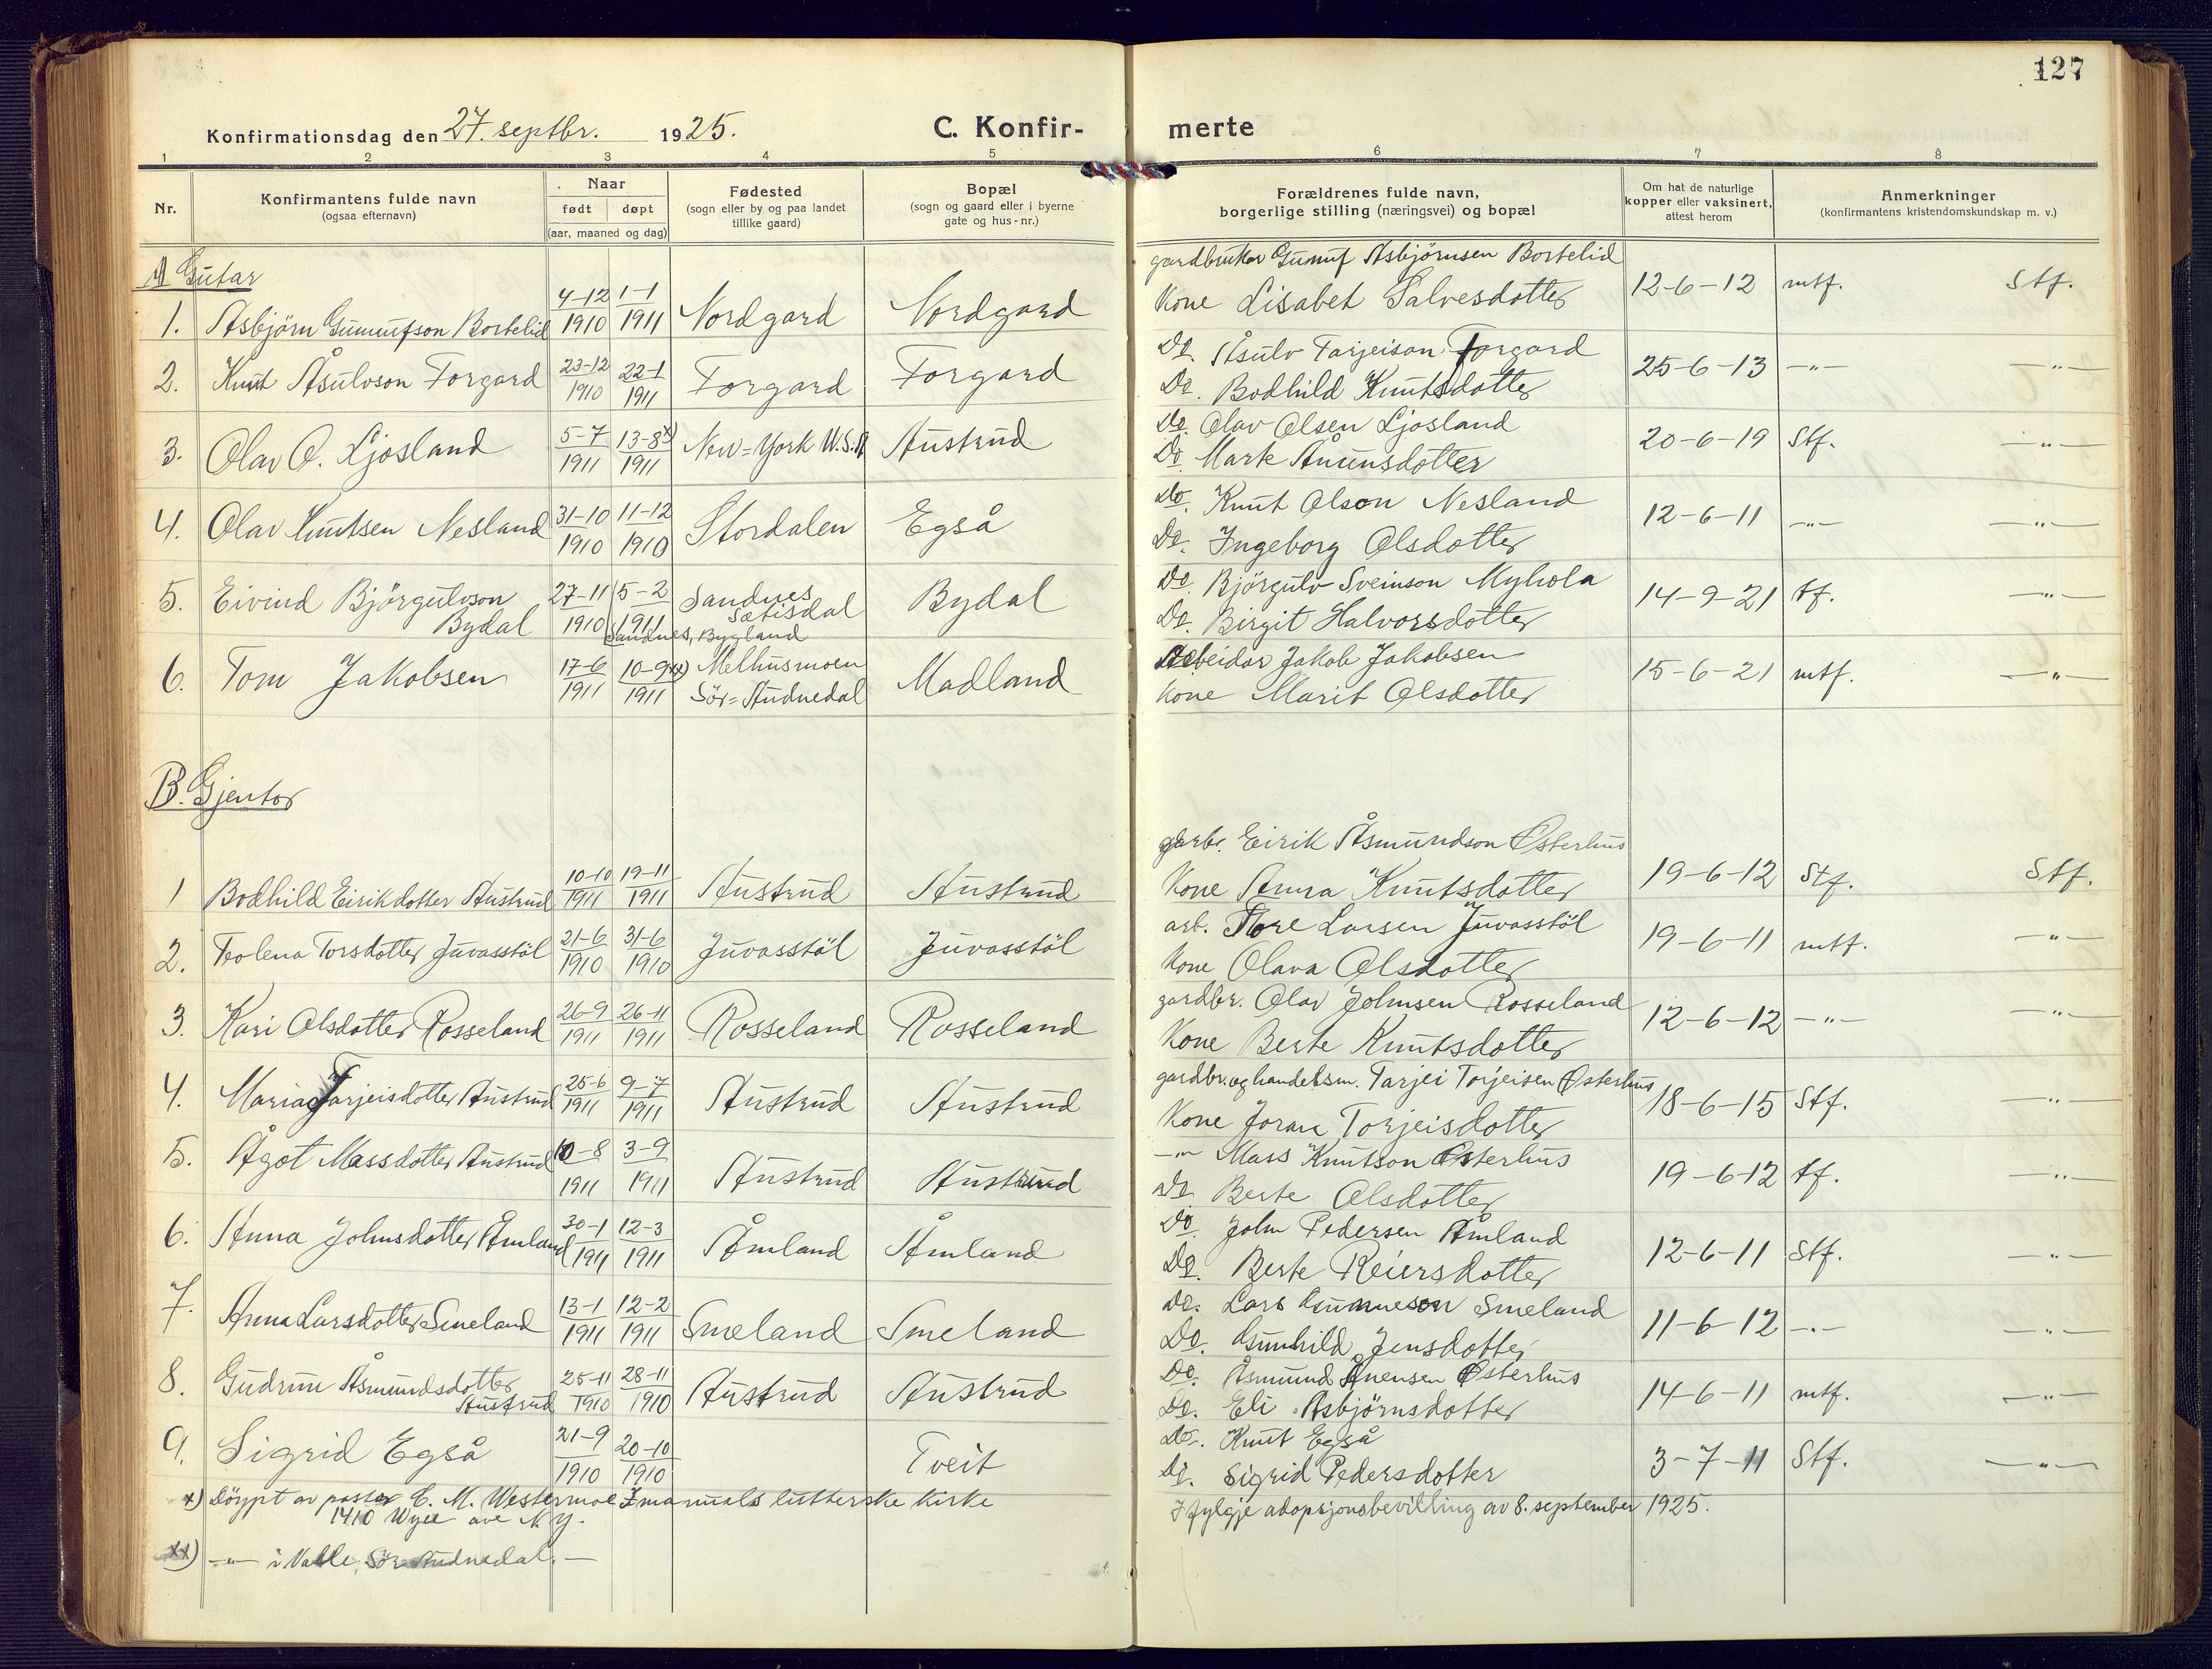 127
Konfirmationsdag den 27. septbr. 1925.
C. Konfirmerte
1 2 3 4 5 6 7 8
Nr.
Konfirmantens fulde navn
(ogsaa efternavn)
Naar
født døpt
(aar, maaned og dag)
Fødested
(sogn eller by og paa landet
tillike gaard)
Bopæl
(sogn og gaard eller i byerne
gate og hus-nr.)
Forældrenes fulde navn,
borgerlige stilling (næringsvei) og bopæl
Om hat de naturlige
kopper eller vaksinert,
attest herom
Anmerkninger
(konfirmantens kristendomskundskap m. v.)
A Gutar
1. Asbjörn Gunnufson Bortelid 4-12 1910 1-1 1911 Nordgard Nordgard
gardbruker Gunnuf Asbjörnsen Bortelid
Kone Lisabet Salvesdotter 12-6-12 mtf. Stf.
2. Knut Åsulvson Forgard 23-12 1910 22-1 1911 Forgard Forgard
Do. Åsulv Tarjeison Forgard
Do. Bodhild Knutsdotter 25-6-13 -"- -"-
3. Olav O. Ljosland 5-7 1911 13-8 x) 1911 New=York U.S.A Austrud
Do. Olav Olsen Ljosland
Do Marte Ånunsdotter 20-6-19 Stf. -"-
4. Olav Knutsen Nesland 31-10 1910 11-12 1910 Stordalen Egså
Do. Knut Olson Nesland
Do. Ingeborg Olsdotter 12-6-11 -"- -"-
5. Eivind Björgulvson
Bydal 27-11 1910 5-2 1911 Sandnes
Sætisdal Bydal
Sandnes, Bygland
Do. Björgulv Sveinson Myhola
Do. Birgit Halvorsdotter 14-9-21 tf. -"-
6. Tom Jakobsen 17-6 1911 10-9 xx) 1911 Melhusmoen
Sör=Audnedal Madland
Arbeidar Jakob Jakobsen
Kone Marit Olsdotter 15-6-21 mtf. -"-
B. Gjentor
1 Bodhild Eirikdotter Austrud 10-10 1911 19-11 1911 Austrud Austrud
garbr. Eirik Åsmundson Østerhus
Kone Anna Knutsdotter 19-6-12 Stf. Stf.
2. Teolena Torsdotter Juvasstöl 21-6 1910 31-6 1910 Juvasstöl Juvasstöl
arb. Tore Larsen Juvasstöl
Kone Olava Olsdotter 19-6-11 mtf. -"-
3. Kari Olsdotter Rosseland 26-9 1911 26-11 1911 Rosseland Rosseland
gardbr. Olav Johnsen Rosseland
Kone Berte Knutsdotter 12-6-12 -"- -"-
4. Maria Tarjeisdotter Austrud 25-6 1911 9-7 1911 Austrud Austrud
gardbr. og handelsm. Tarjei Torjeisen Østerhus
Kone Joran Torjeisdotter 18-6-15 Stf. -"-
5. Ågot Massdotter Austrud 10-8 1911 3-9 1911 Austrud Austrud
-"- Mass Knutson Østerhus
Do. Berte Olsdotter 19-6-12 tf. -"-
6. Anna Johnsdotter Åmland 30-1 1911 12-3 1911 Åmland Åmland
Do John Pedersen Åmland
Do. Berte Reiersdotter 12-6-11 Stf. -"-
7. Anna Larsdotter Smeland 13-1 1911 12-2 1911 Smeland Smeland
Do. Lars Gunneson Smeland
Do. Gunhild Jensdotter 11-6-12 -"- -"-
8. Gudrun Åsmundsdotter
Austrud 25-11 1910 28-11 1910 Austrud Austrud
Do. Åsmund Ånensen Østerhus
Do. Eli Asbjörnsdotter 14-6-11 mtf. -"-
9. Sigrid Egså 21-9 1910 20-10 1910 Tveit
Do. Knut Egså
Do. Sigrid Pedersdotter 3-7-11 Stf. -"-
x) Döypt av pastor C. M. Westermoe Imanuals lutterske kirke
1410 ave N.Y.
I fylgje adopsjonsbevilling av 8. september 1925.
xx) -"- i Valle, Sör Audnedal. -